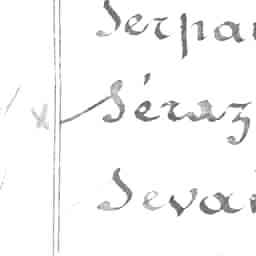 Serpa
x Séraz
Seva